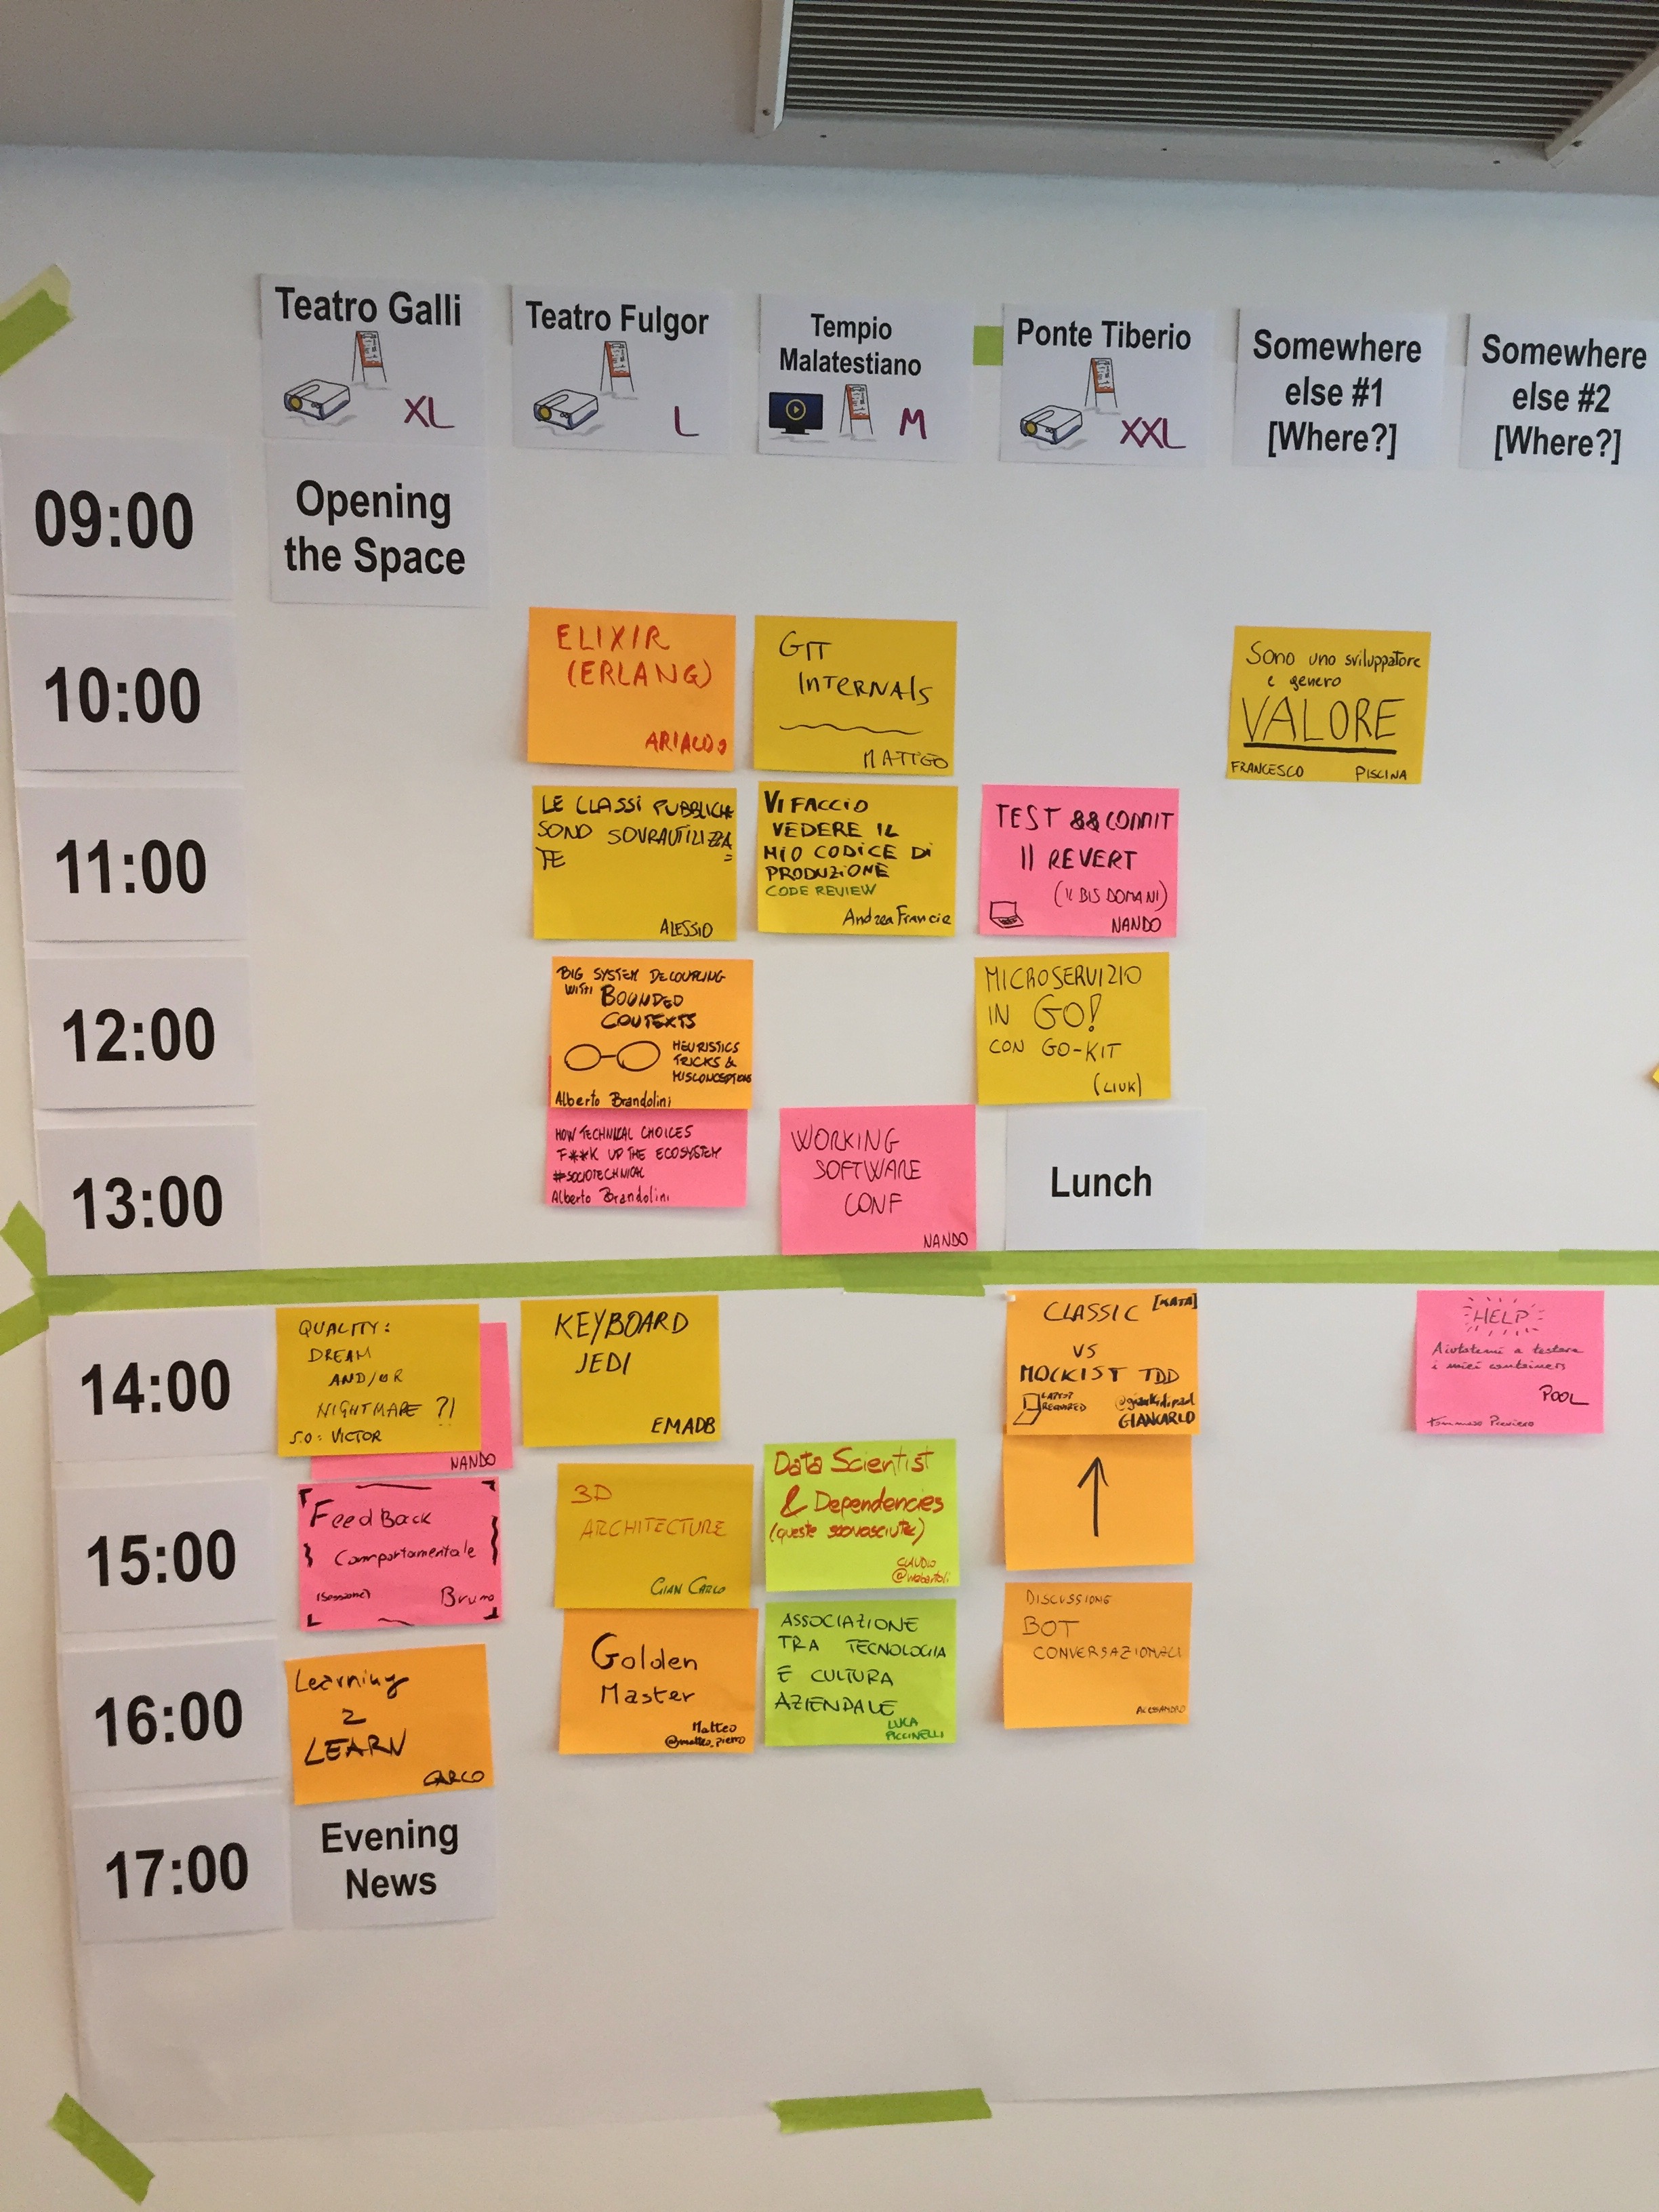 Teatro Galli
XL
Teatro Fulgor
L
Tempio
Malatestiano
M
Ponte Tiberio
XXL
Somewhere
else #1
[Where?]
Somewhere
else #2
[Where?]
09:00
Opening
the Space
10:00
ELIXIR
(ERLANG)
ARIALDO
GIT
INTERNALS
MATTEO
Sono uno sviluppatore
e genero
VALORE
FRANCESCO PISCINA
11:00
LE CLASSI PUBBLICHE
SONO SOVRAUTILIZZA
TE
ALESSIO
VI FACCIO
VEDERE IL
MIO CODICE DI
PRODUZIONE
CODE REVIEW
Andrea Francia
TEST && COMMIT
|| REVERT
(IL BIS DOMANI)
NANDO
12:00
BIG SYSTEM DECOUPLING
WITH BOUNDED
CONTEXTS
HEURISTICS
TRICKS &
MISCONCEPTIONS
Alberto Brandolini
MICROSERVIZIO
IN GO!
CON GO-KIT
(LIUK)
13:00
HOW TECHNICAL CHOICES
F**K UP THE ECOSYSTEM
#SOCIOTECHNICAL
Alberto Brandolini
WORKING
SOFTWARE
CONF
NANDO
Lunch
14:00
QUALITY:
DREAM
AND/OR
NIGHTMARE ?!
S.O.: VICTOR
NANDO
KEYBOARD
JEDI
EMADB
CLASSIC [KATA]
VS
MOCKIST TDD
LAPTOP
REQUIRED
GIANCARLO
HELP
Aiutatemi a testare
i miei containers
POOL
15:00
FeedBack
Comportamentale
(sessione)
Bruno
3D
ARCHITECTURE
GIAN CARLO
Data Scientist
& Dependencies
(queste sconosciute)
CLAUDIO
16:00
Learning
2
LEARN
CARCO
Golden
Master
Matteo
@matteo_pierro
ASSOCIAZIONE
TRA TECNOLOGIA
E CULTURA
AZIENDALE
LUCA
PICCINELLI
DISCUSSIONE
BOT
CONVERSAZIONALI
ALESSANDRO
17:00
Evening
News